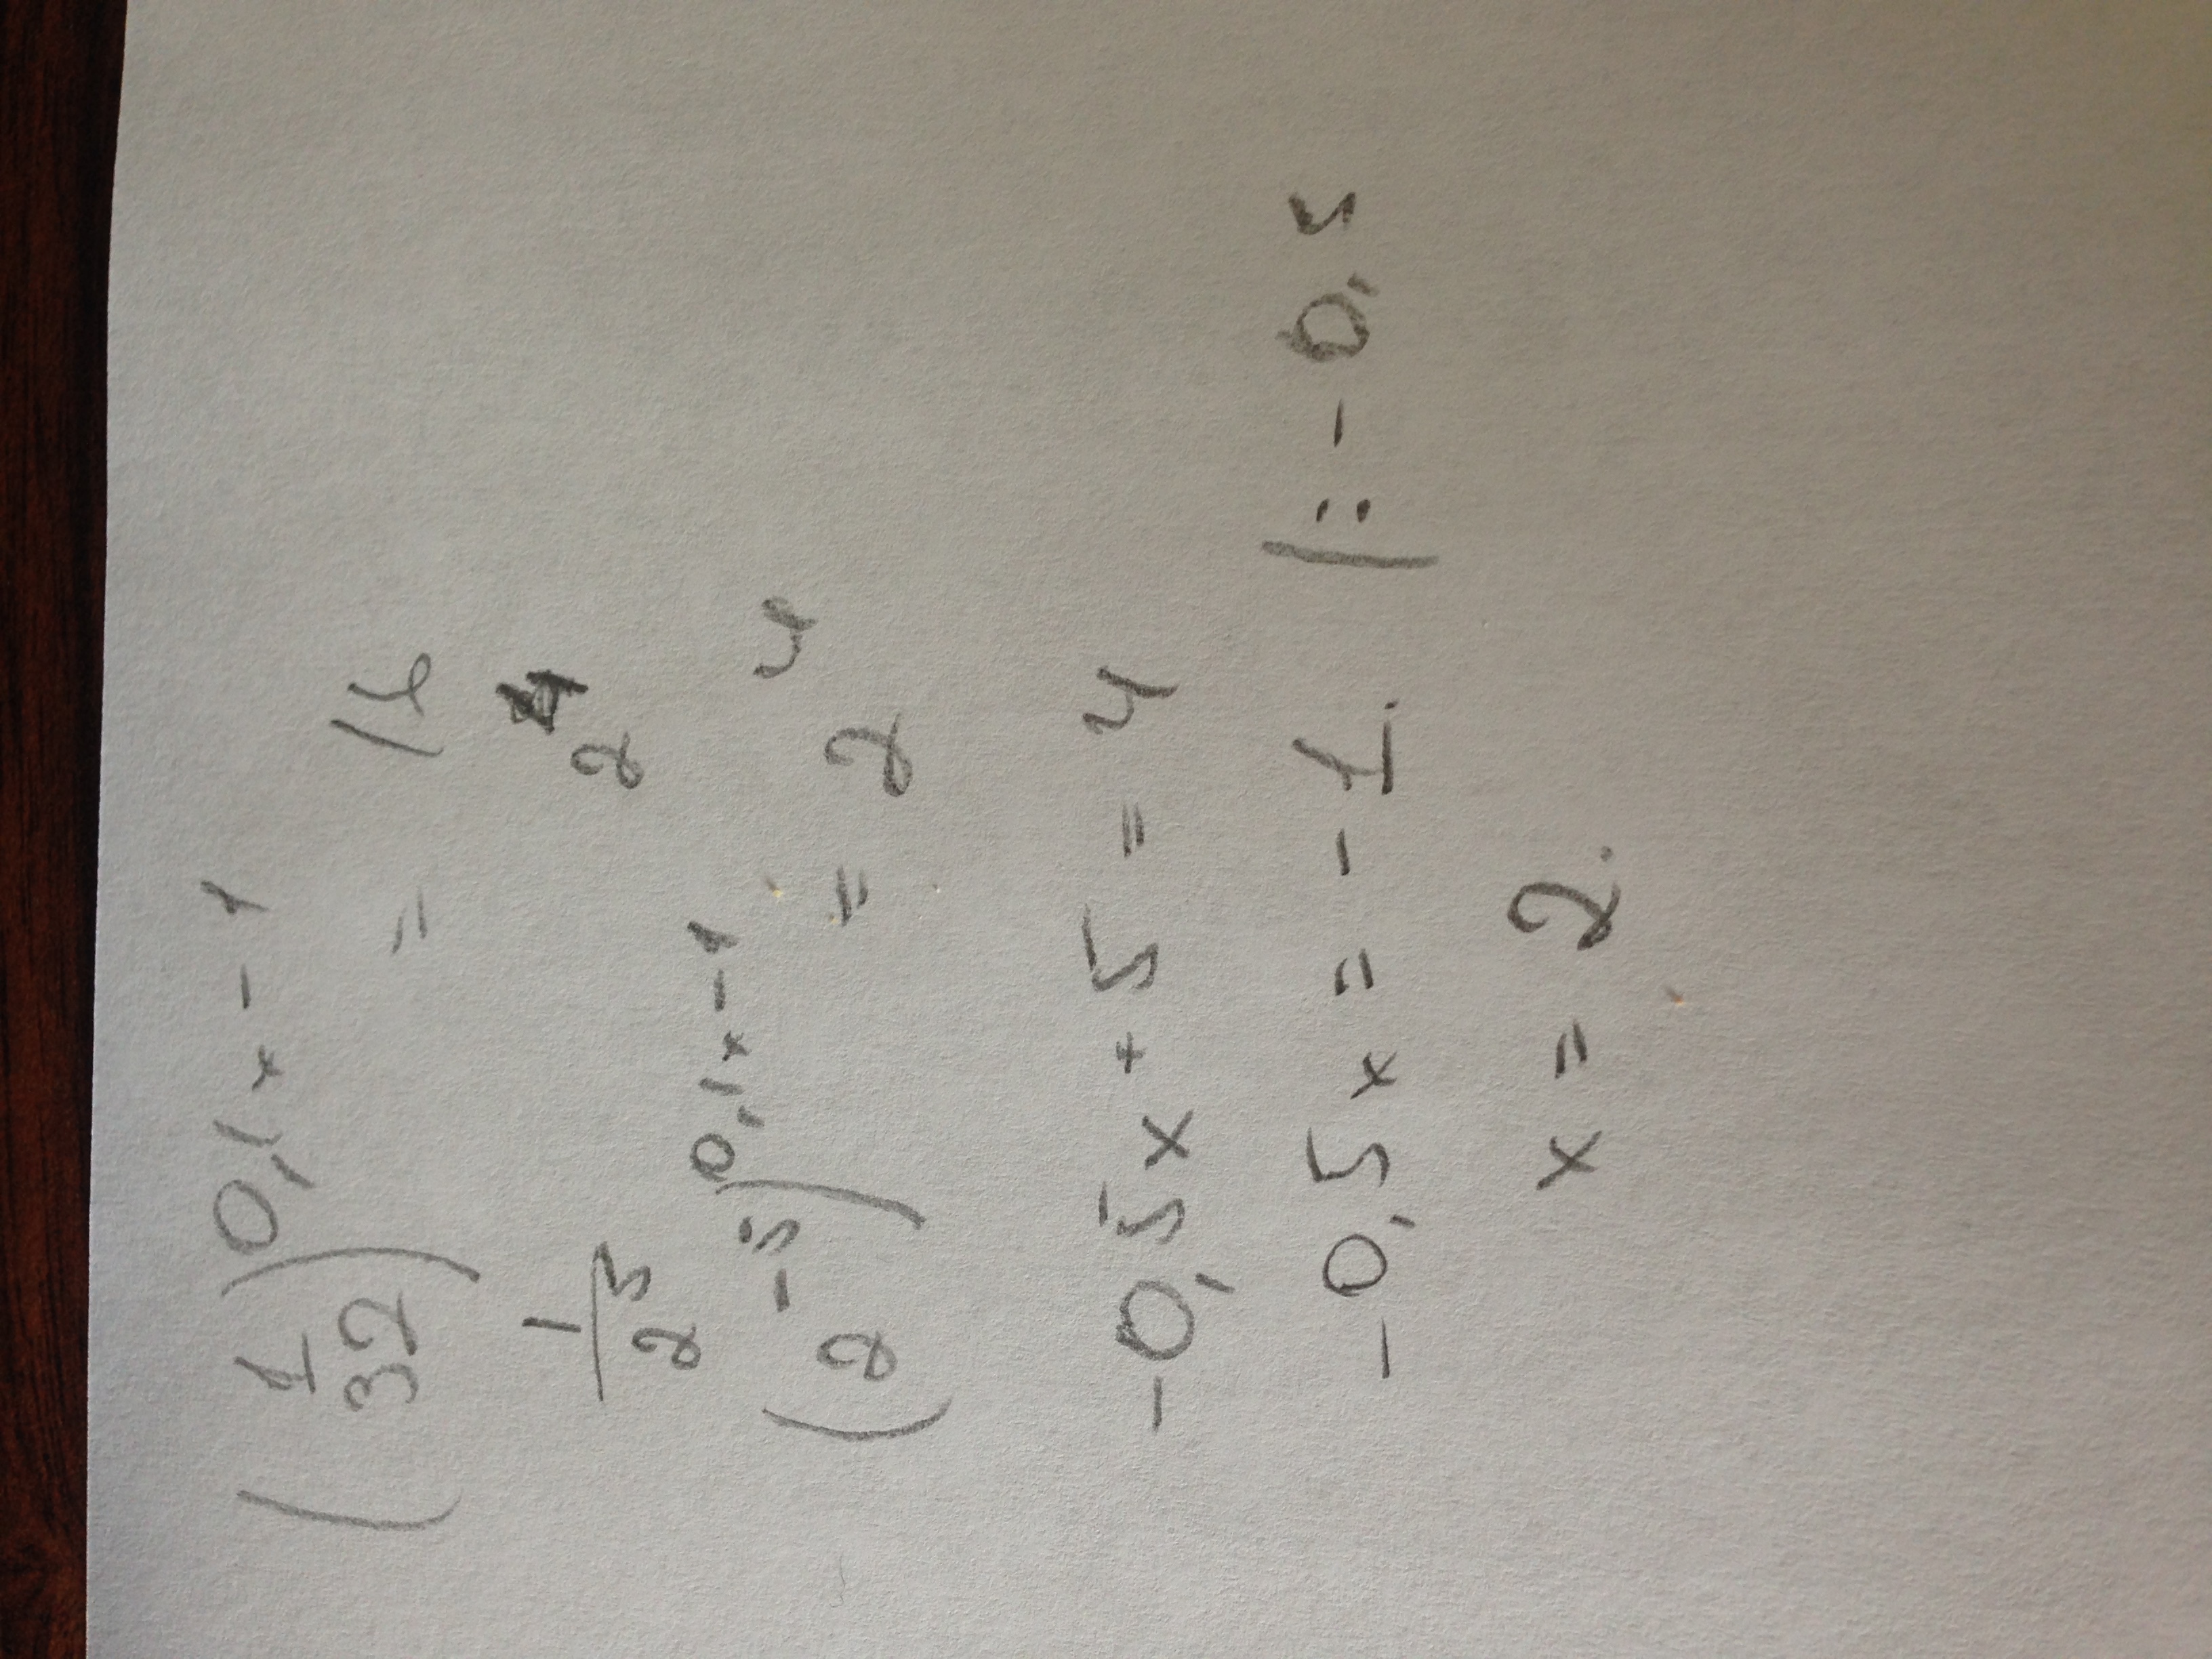 (1/32)^(0,1x-1) = 16
1/2^5 2^4
(2^-5)^(0,1x-1) = 2^4
-0,5x+5=4
-0,5x=-1 |:-0,5
x=2.